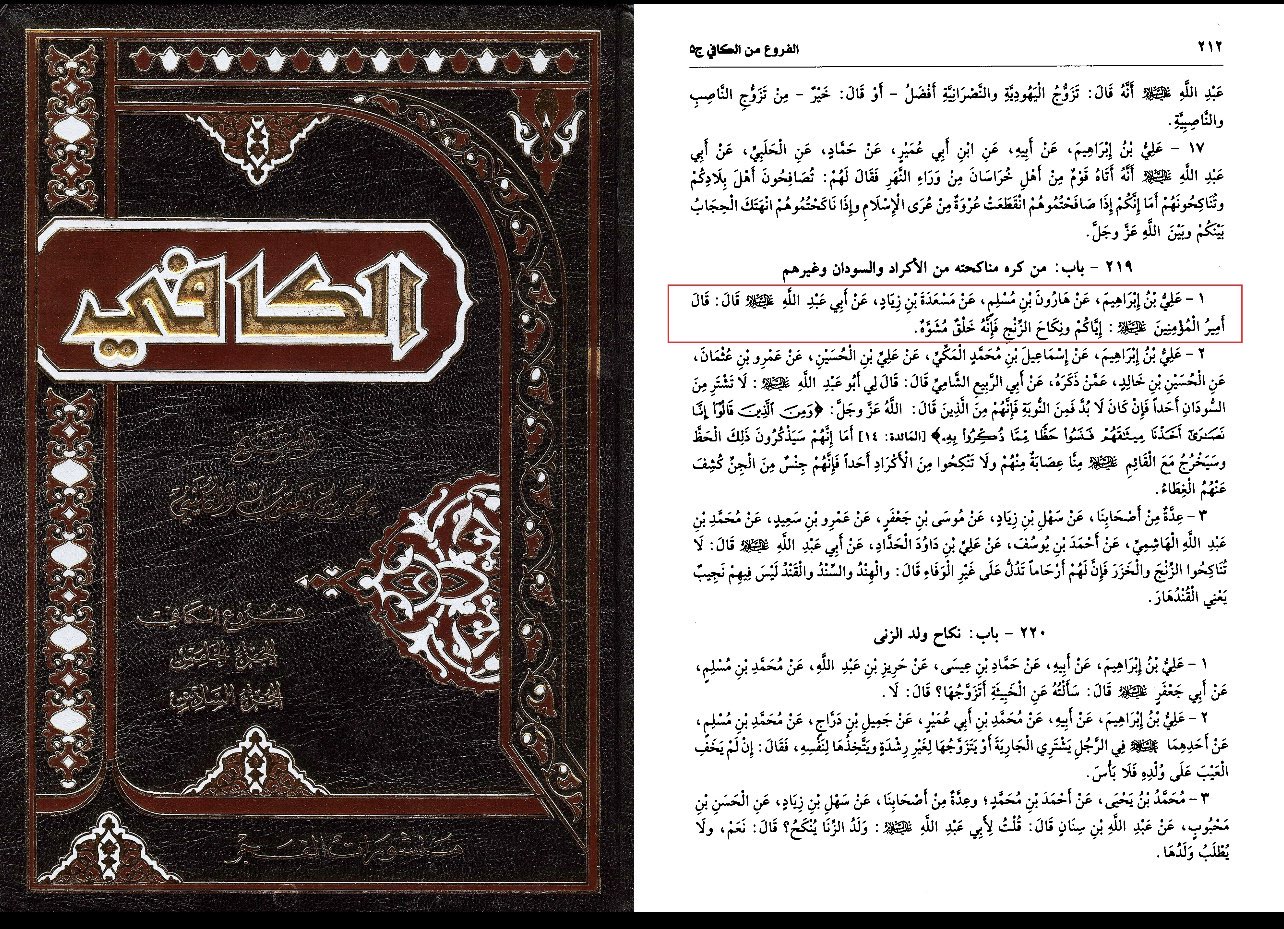 الكافي
فروع الكافي
الجزء الخامس
الجزء السادس
منشورات الفجر
٢١٢
الفروع من الكافي ج٥
عَبْدِ اللَّهِ عليه السلام أَنَّهُ قَالَ: تَزَوُّجُ الْيَهُودِيَّةِ والنَّصْرَانِيَّةِ أَفْضَلُ - أَوْ قَالَ: خَيْرٌ - مِنْ تَزَوُّجِ النَّاصِبِ
والنَّاصِبِيَّةِ.
١٧ - عَلِيُّ بْنُ إِبْرَاهِيمَ، عَنْ أَبِيهِ، عَنِ ابْنِ أَبِي عُمَيْرٍ، عَنْ حَمَّادٍ، عَنِ الْحَلَبِيِّ، عَنْ أَبِي
عَبْدِ اللَّهِ عليه السلام أَنَّهُ أَتَاهُ قَوْمٌ مِنْ أَهْلِ خُرَاسَانَ مِنْ وَرَاءِ النَّهَرِ فَقَالَ لَهُمْ: تُصَافِحُونَ أَهْلَ بِلَادِكُمْ
وتُنَاكِحُونَهُمْ أَمَا إِنَّكُمْ إِذَا صَافَحْتُمُوهُمْ انْقَطَعَتْ عُرْوَةٌ مِنْ عُرَى الْإِسْلَامِ وإِذَا نَاكَحْتُمُوهُمْ انْهَتَكَ الْحِجَابُ
بَيْنَكُمْ وبَيْنَ اللَّهِ عَزَّ وجَلَّ.
٢١٩ - باب: من كره مناكحته من الأكراد والسودان وغيرهم
١ - عَلِيُّ بْنُ إِبْرَاهِيمَ، عَنْ هَارُونَ بْنِ مُسْلِمٍ، عَنْ مَسْعَدَةَ بْنِ زِيَادٍ، عَنْ أَبِي عَبْدِ اللَّهِ عليه السلام قَالَ: قَالَ
أَمِيرُ الْمُؤْمِنِينَ عليه السلام: إِيَّاكُمْ ونِكَاحَ الزِّنْجِ فَإِنَّهُ خَلْقٌ مُشَوَّهٌ.
٢ - عَلِيُّ بْنُ إِبْرَاهِيمَ، عَنْ إِسْمَاعِيلَ بْنِ مُحَمَّدٍ الْمَكِّيِّ، عَنْ عَلِيِّ بْنِ الْحُسَيْنِ، عَنْ عَمْرِو بْنِ عُثْمَانَ،
عَنِ الْحُسَيْنِ بْنِ خَالِدٍ، عَمَّنْ ذَكَرَهُ، عَنْ أَبِي الرَّبِيعِ الشَّامِيِّ قَالَ: قَالَ لِي أَبُو عَبْدِ اللَّهِ عليه السلام: لَا تَشْتَرِ مِنَ
السُّودَانِ أَحَداً فَإِنْ كَانَ لَا بُدَّ فَمِنَ النُّوبَةِ فَإِنَّهُمْ مِنَ الَّذِينَ قَالَ: اللَّهُ عَزَّ وجَلَّ: ﴿وَمِنَ ٱلَّذِينَ قَالُوٓا إِنَّا
نَصَـٰرَىٰٓ أَخَذْنَا مِيثَـٰقَهُمْ فَنَسُوا۟ حَظًّا مِّمَّا ذُكِّرُوا۟ بِهِۦ﴾ [المائدة: ١٤] أَمَا إِنَّهُمْ سَيَذْكُرُونَ ذَلِكَ الْحَظَّ
وسَيَخْرُجُ مَعَ الْقَائِمِ عليه السلام مِنَّا عِصَابَةٌ مِنْهُمْ ولَا تَنْكِحُوا مِنَ الْأَكْرَادِ أَحَداً فَإِنَّهُمْ جِنْسٌ مِنَ الْجِنِّ كُشِفَ
عَنْهُمُ الْغِطَاءُ.
٣ - عِدَّةٌ مِنْ أَصْحَابِنَا، عَنْ سَهْلِ بْنِ زِيَادٍ، عَنْ مُوسَى بْنِ جَعْفَرٍ، عَنْ عَمْرِو بْنِ سَعِيدٍ، عَنْ مُحَمَّدِ بْنِ
عَبْدِ اللَّهِ الْهَاشِمِيِّ، عَنْ أَحْمَدَ بْنِ يُوسُفَ، عَنْ عَلِيِّ بْنِ دَاوُدَ الْحَدَّادِ، عَنْ أَبِي عَبْدِ اللَّهِ عليه السلام قَالَ: لَا
تُنَاكِحُوا الزِّنْجَ والْخَزَرَ فَإِنَّ لَهُمْ أَرْحَاماً تَدُلُّ عَلَى غَيْرِ الْوَفَاءِ قَالَ: والْهِنْدُ والسِّنْدُ والْقَنْدُ لَيْسَ فِيهِمْ نَجِيبٌ
يَعْنِي الْقُنْدُهَارَ.
٢٢٠ - باب: نكاح ولد الزنى
١ - عَلِيُّ بْنُ إِبْرَاهِيمَ، عَنْ أَبِيهِ، عَنْ حَمَّادِ بْنِ عِيسَى، عَنْ حَرِيزِ بْنِ عَبْدِ اللَّهِ، عَنْ مُحَمَّدِ بْنِ مُسْلِمٍ،
عَنْ أَبِي جَعْفَرٍ عليه السلام قَالَ: سَأَلْتُهُ عَنِ الْخَبِيثَةِ أَتَزَوَّجُهَا؟ قَالَ: لَا.
٢ - عَلِيُّ بْنُ إِبْرَاهِيمَ، عَنْ أَبِيهِ، عَنْ مُحَمَّدِ بْنِ أَبِي عُمَيْرٍ، عَنْ جَمِيلِ بْنِ دَرَّاجٍ، عَنْ مُحَمَّدِ بْنِ مُسْلِمٍ،
عَنْ أَحَدِهِمَا عليه السلام فِي الرَّجُلِ يَشْتَرِي الْجَارِيَةَ أَوْ يَتَزَوَّجُهَا لِغَيْرِ رِشْدَةٍ ويَتَّخِذُهَا لِنَفْسِهِ، فَقَالَ: إِنْ لَمْ يَخَفِ
الْعَيْبَ عَلَى وُلْدِهِ فَلَا بَأْسَ.
٣ - مُحَمَّدُ بْنُ يَحْيَى، عَنْ أَحْمَدَ بْنِ مُحَمَّدٍ؛ وعِدَّةٌ مِنْ أَصْحَابِنَا، عَنْ سَهْلِ بْنِ زِيَادٍ، عَنِ الْحَسَنِ بْنِ
مَحْبُوبٍ، عَنْ عَبْدِ اللَّهِ بْنِ سِنَانٍ قَالَ: قُلْتُ لِأَبِي عَبْدِ اللَّهِ عليه السلام: وَلَدُ الزِّنَا يُنْكَحُ؟ قَالَ: نَعَمْ، ولَا
يُطْلَبُ وَلَدُهَا.